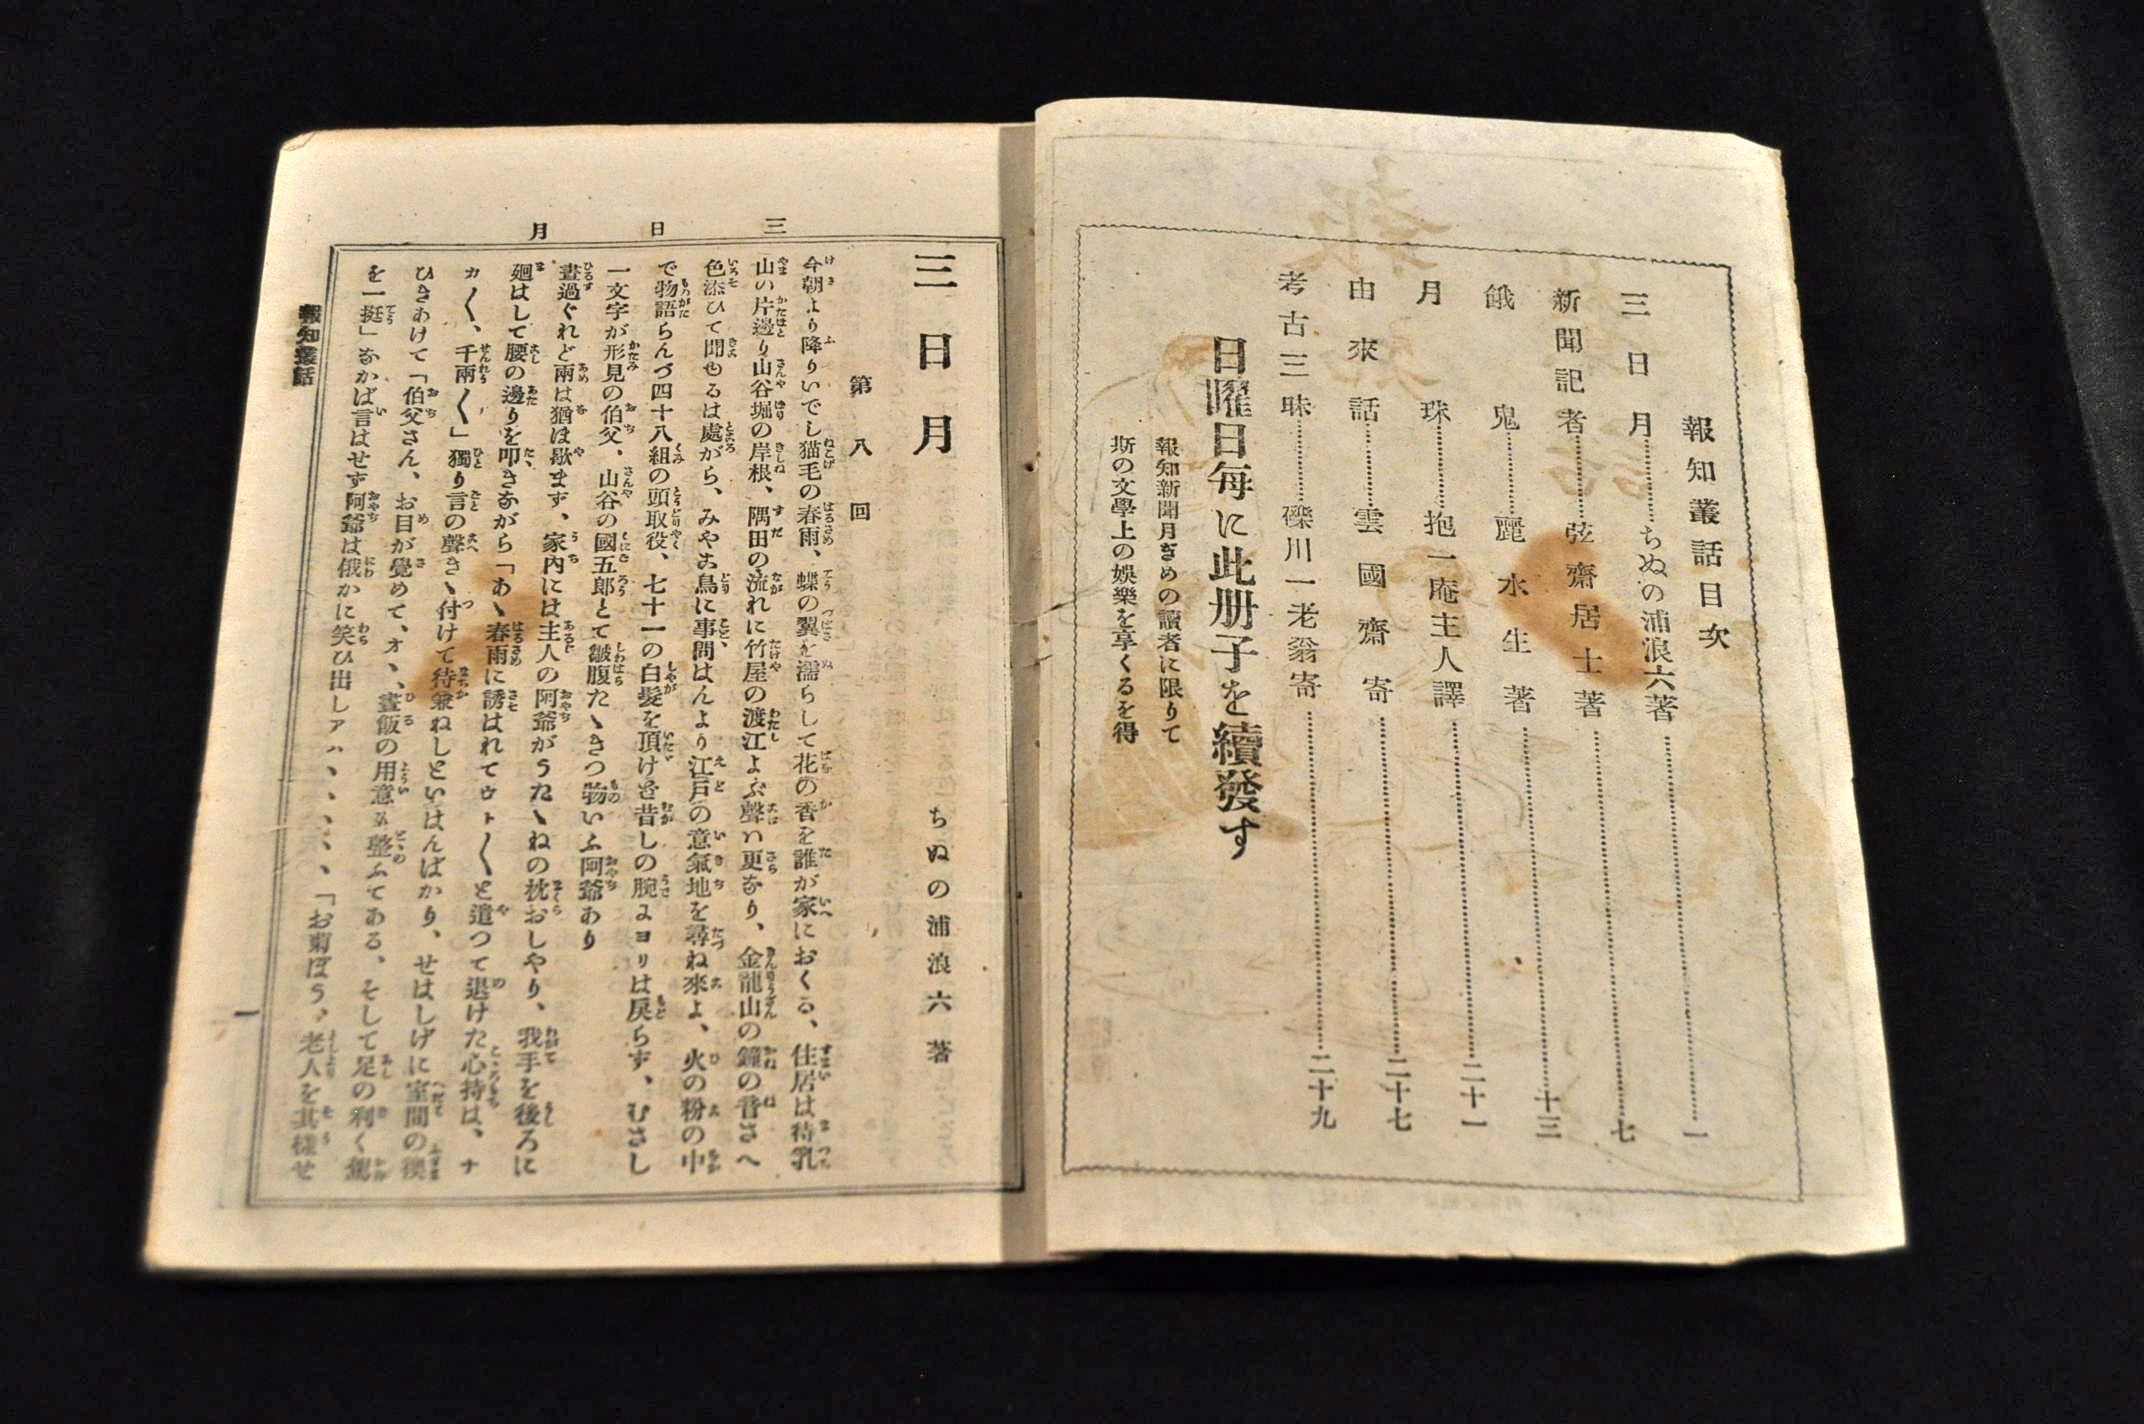 報知叢話目次
三日月………ちぬの浦浪六著………一
新聞記者………弦齋居士著………七
餓鬼………麗水生著………十三
月珠………抱一庵主人譯………二十一
由來話………雲國齋寄………二十七
考古三昧………礫川一老翁寄………二十九
日曜日每に此册子を續發す
報知新聞月ぎめの讀者に限りて
斯の文學上の娛樂を享くるを得
三日月
三日月
ちぬの浦浪六著
第八回
今朝より降りいでし猫毛の春雨、蝶の翼を濡らして花の香を誰が家におくる、住居は待乳
山の片邊り山谷堀の岸根、隅田の流れに竹屋の渡江よぶ聲ハ更なり、金龍山の鐘の音さへ
色添ひて聞ゆるは處がら、みやこ鳥に事問はんより江戸の意氣地を尋ね來よ、火の粉の中
で物語らんづ四十八組の頭取役、七十一の白髮を頂けど昔しの腕にヨリは戻らず、むさし
一文字が形見の伯父、山谷の國五郎とて皺腹たゝきつ物いふ阿爺あり
晝過ぐれど雨は猶ほ歇まず、家內には主人の阿爺がうたゝねの枕おしやり、我手を後ろに
廻はして腰の邊りを叩きながら「あゝ春雨に誘はれてウト〱と遣つて退けた心持は、ナ
カ〱、千兩〱」獨り言の聲きゝ付けて待兼ねしといはんばかり、せはしげに室間の襖
ひきあけて「伯父さん、お目が覺めて、オヽ、晝飯の用意も整ふてある、そして足の利く駕
を一挺」なかば言はせず阿爺は俄かに笑ひ出しアハヽヽヽヽ、「お菊ぼう、老人を其樣せ
報知叢話
一